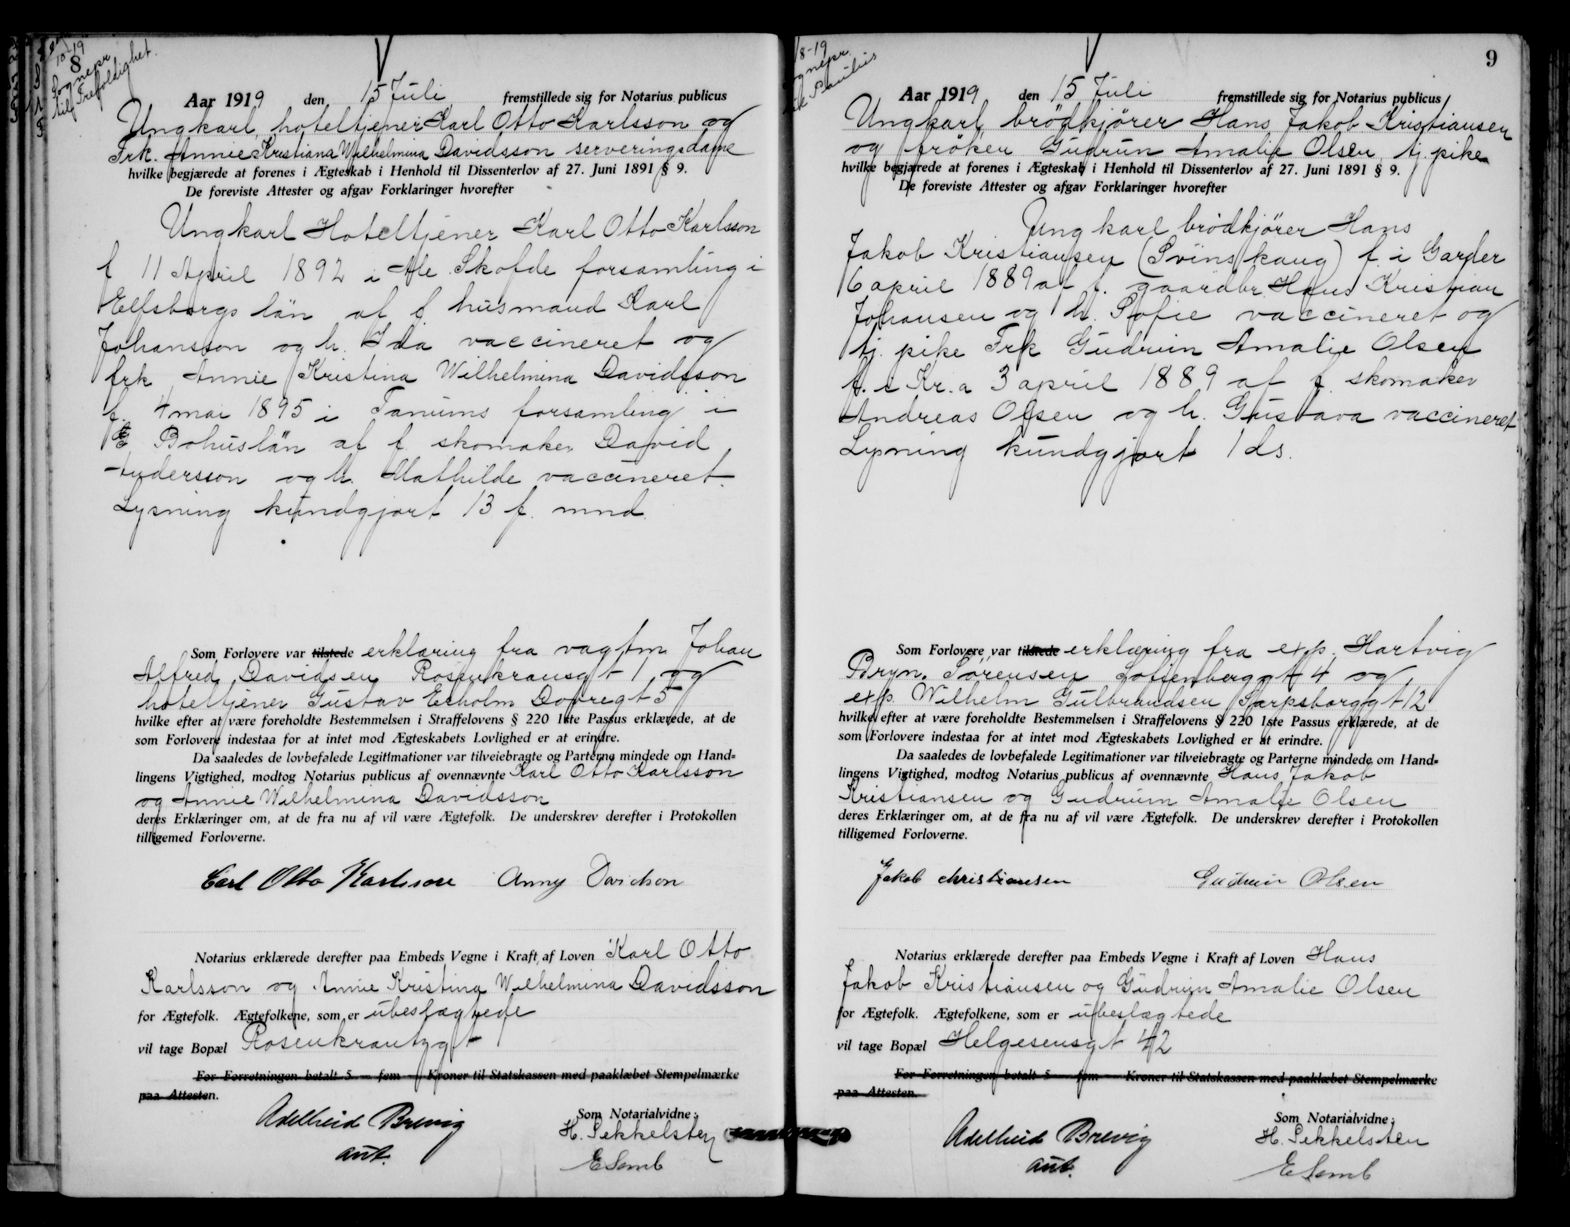 8
10-19
Sognepr
til Trefoldighet.
Aar 1919 den 15 Juli fremstillede sig for Notarius publicus
Ungkarl, hoteltjener Karl Otto Karlsson og
Frk. Annie Kristiana Wilhelmina Davidsson serveringsdame
hvilke begjærede at forenes i Ægteskab i Henhold til Dissenterlov af 27. Juni 1891 § 9.
De foreviste Attester og afgav Forklaringer hvorefter
Ungkarl Hoteltjener Karl Otto Karlsson
f 11 April 1892 i Skofde forsamling i
Elfsborgs län af f husmand Karl
Johansson og h. Ida vaccineret og
frk Annie Kristina Wilhelmina Davidsson
f. 4 mai 1895 i Tanums forsamling i
Bohuslän af f skomaker David
Andersson og h. Mathilde vaccineret.
Lysning kundgjort 13 f. mnd.
Som Forlovere var tilstede erklæring fra vagtm Johan
Alfred Davidsen Rosenkransgt 1 og
hoteltjener Gustav Ekholm Dovregt 5
hvilke efter at være foreholdte Bestemmelsen i Straffelovens § 220 1ste Passus erklærede, at de
som Forlovere indestaa for at intet mod Ægteskabets Lovlighed er at erindre.
Da saaledes de lovbefalede Legitimationer var tilveiebragte og Parterne mindede om Hand-
lingens Vigtighed, modtog Notarius publicus af ovennævnte Karl Otto Karlsson
og Annie Wilhelmina Davidsson
deres Erklæringer om, at de fra nu af vil være Ægtefolk. De underskrev derefter i Protokollen
tilligemed Forloverne.
Carl Otto Karlsson Anny Davidson
Notarius erklærede derefter paa Embeds Vegne i Kraft af Loven Karl Otto
Karlsson og Annie Kristina Wilhelmina Davidsson
for Ægtefolk. Ægtefolkene, som er ubeslægtede
vil tage Bopæl Rosenkrantzgt 1
For Forretningen betalt 5 — fem — Kroner til Statskassen med paaklæbet Stempelmærke
paa Attesten.
Adelheid Brevig
aut.
Som Notarialvidne:
H. Sekkelsten
E Semb
9
8-19
Sognepr
Paulus
Aar 1919 den 15 Juli fremstillede sig for Notarius publicus
Ungkarl, brödkjörer Hans Jakob Kristiansen
og fröken Gudrun Amalie Olsen, tj. pike
hvilke begjærede at forenes i Ægteskab i Henhold til Dissenterlov af 27. Juni 1891 § 9.
De foreviste Attester og afgav Forklaringer hvorefter
Ungkarl brödkjörer Hans
Jakob Kristiansen (Svinskaug) f. i Garder
6 april 1889 af f. gaardbr Hans Kristian
Johansen og h. Sofie vaccineret og
tj. pike Frk Gudrun Amalie Olsen
f. i Kr.a 3 april 1889 af f. skomaker
Andreas Olsen og h. Gustava vaccineret
Lysning kundgjort 1 ds.
Som Forlovere var tilstede erklæring fra exp. Hartvig
Bryn. Sörensen Loftenberggt 4 og
exp. Wilhelm Gulbrandsen Sarpsborggt 12
hvilke efter at være foreholdte Bestemmelsen i Straffelovens § 220 1ste Passus erklærede, at de
som Forlovere indestaa for at intet mod Ægteskabets Lovlighed er at erindre.
Da saaledes de lovbefalede Legitimationer var tilveiebragte og Parterne mindede om Hand-
lingens Vigtighed, modtog Notarius publicus af ovennævnte Hans Jakob
Kristiansen og Gudrun Amalie Olsen
deres Erklæringer om, at de fra nu af vil være Ægtefolk. De underskrev derefter i Protokollen
tilligemed Forloverne.
Jakob christiansen Gudrun Olsen
Notarius erklærede derefter paa Embeds Vegne i Kraft af Loven Hans
Jakob Kristiansen og Gudrun Amalie Olsen
for Ægtefolk. Ægtefolkene, som er ubeslægtede
vil tage Bopæl Helgesensgt 42
For Forretningen betalt 5 — fem — Kroner til Statskassen med paaklæbet Stempelmærke
paa Attesten.
Adelheid Brevig
aut.
Som Notarialvidne:
H. Sekkelsten
E Semb